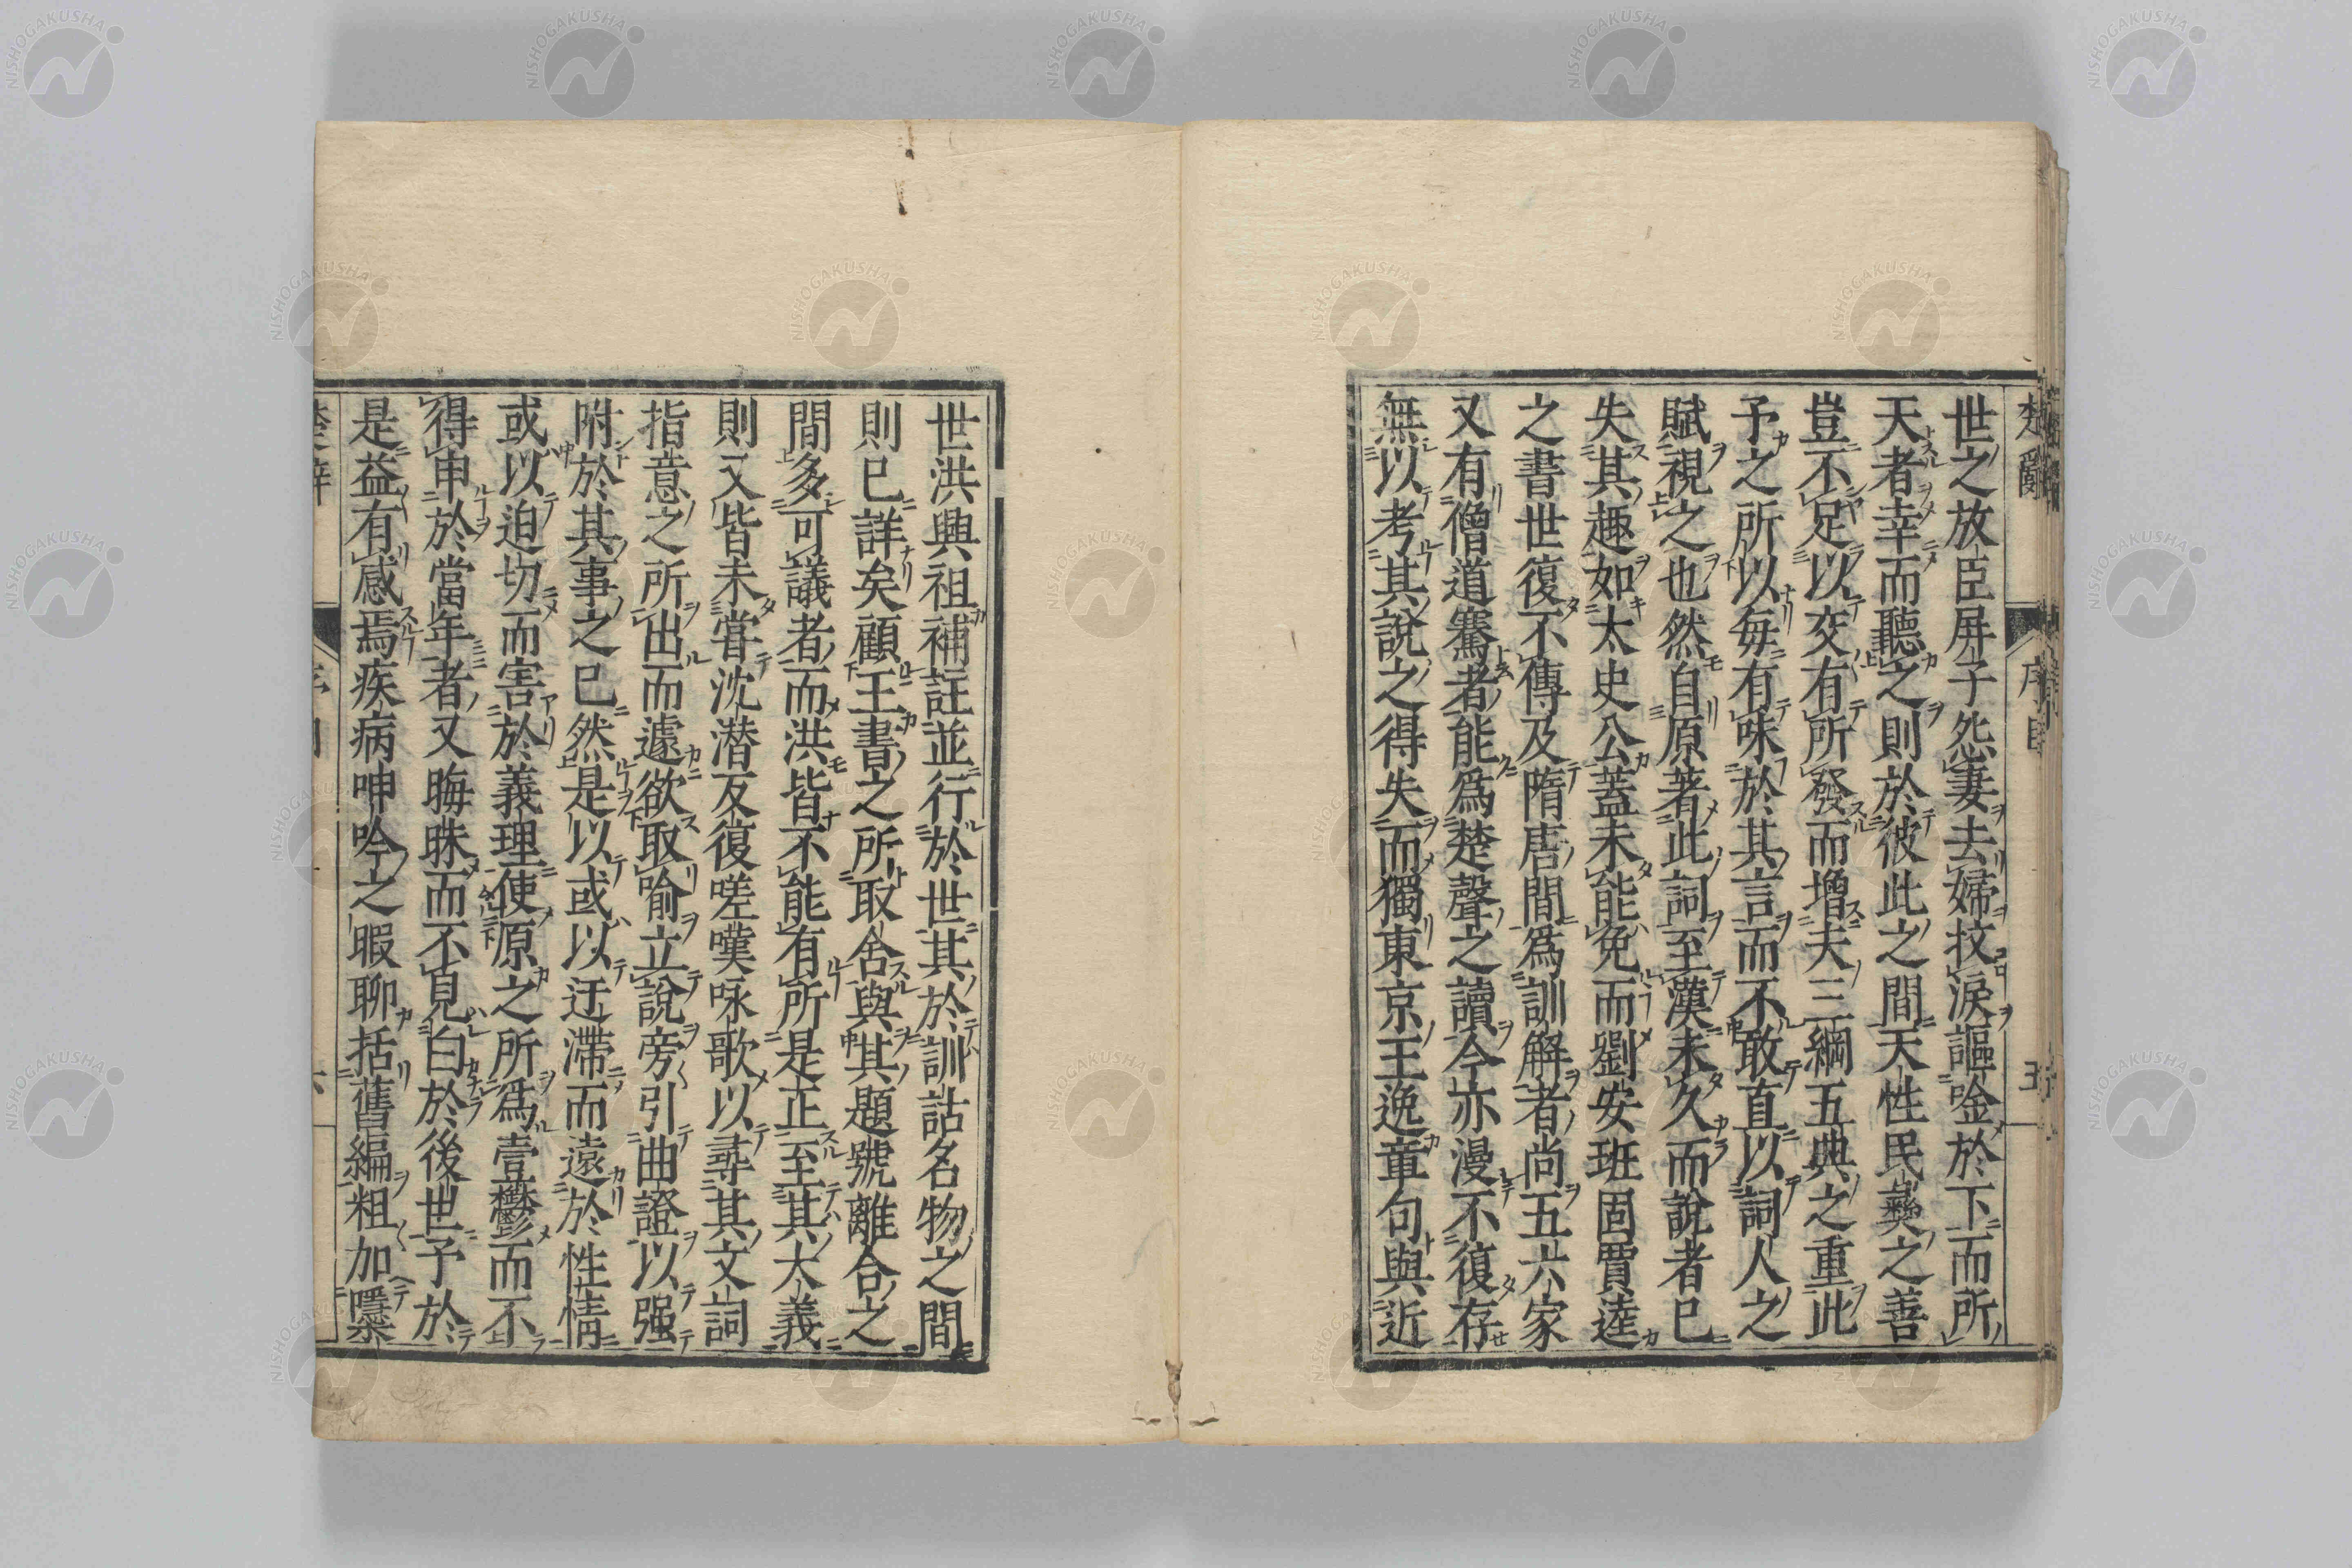 世之放臣屏子怨妻去婦抆淚謳唫於下而所
天者幸而聽之則於彼此之間天性民彜之善
豈不足以交有所發而增夫三綱五典之重此
予之所以每有味於其言而不敢直以詞人之
賦視之也然自原著此詞至漢未久而說者已
失其趣如太史公蓋未能免而劉安班固賈逵
之書世復不傳及隋唐間爲訓解者尚五六家
又有僧道騫者能爲楚聲之讀今亦漫不復存
無以考其說之得失而獨東京王逸章句與近
世洪興祖補註並行於世其於訓詁名物之間
則已詳矣顧王書之所取舍與其題號離合之
間多可議者而洪皆不能有所是正至其大義
則又皆未嘗沈潜反復嗟嘆咏歌以尋其文詞
指意之所出而遽欲取喻立說旁引曲證以强
附於其事之已然是以或以迂滯而遠於性情
或以迫切而害於義理使原之所爲壹鬱而不
得申於當年者又晦昧而不見白於後世予於
是益有感焉疾病呻吟之暇聊括舊編粗加櫽